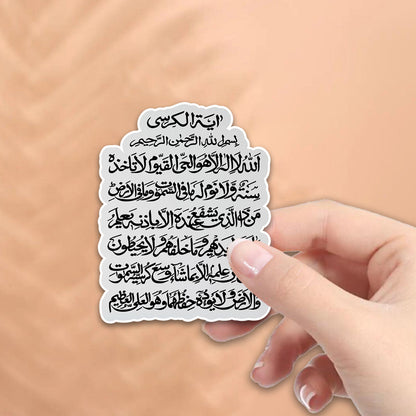 اية الكرسي
بسم الله الرحمن الرحيم
الله لا اله الا هو الحي القيوم لا تاخذه
سنة ولا نوم له ما في السموت وما في الارض
من ذا الذي يشفع عنده الا باذنه يعلم
ما بين ايديهم وما خلفهم ولا يحيطون
بشيء من علمه الا بما شاء وسع كرسيه السموت
والارض ولا يؤده حفظهما وهو العلي العظيم